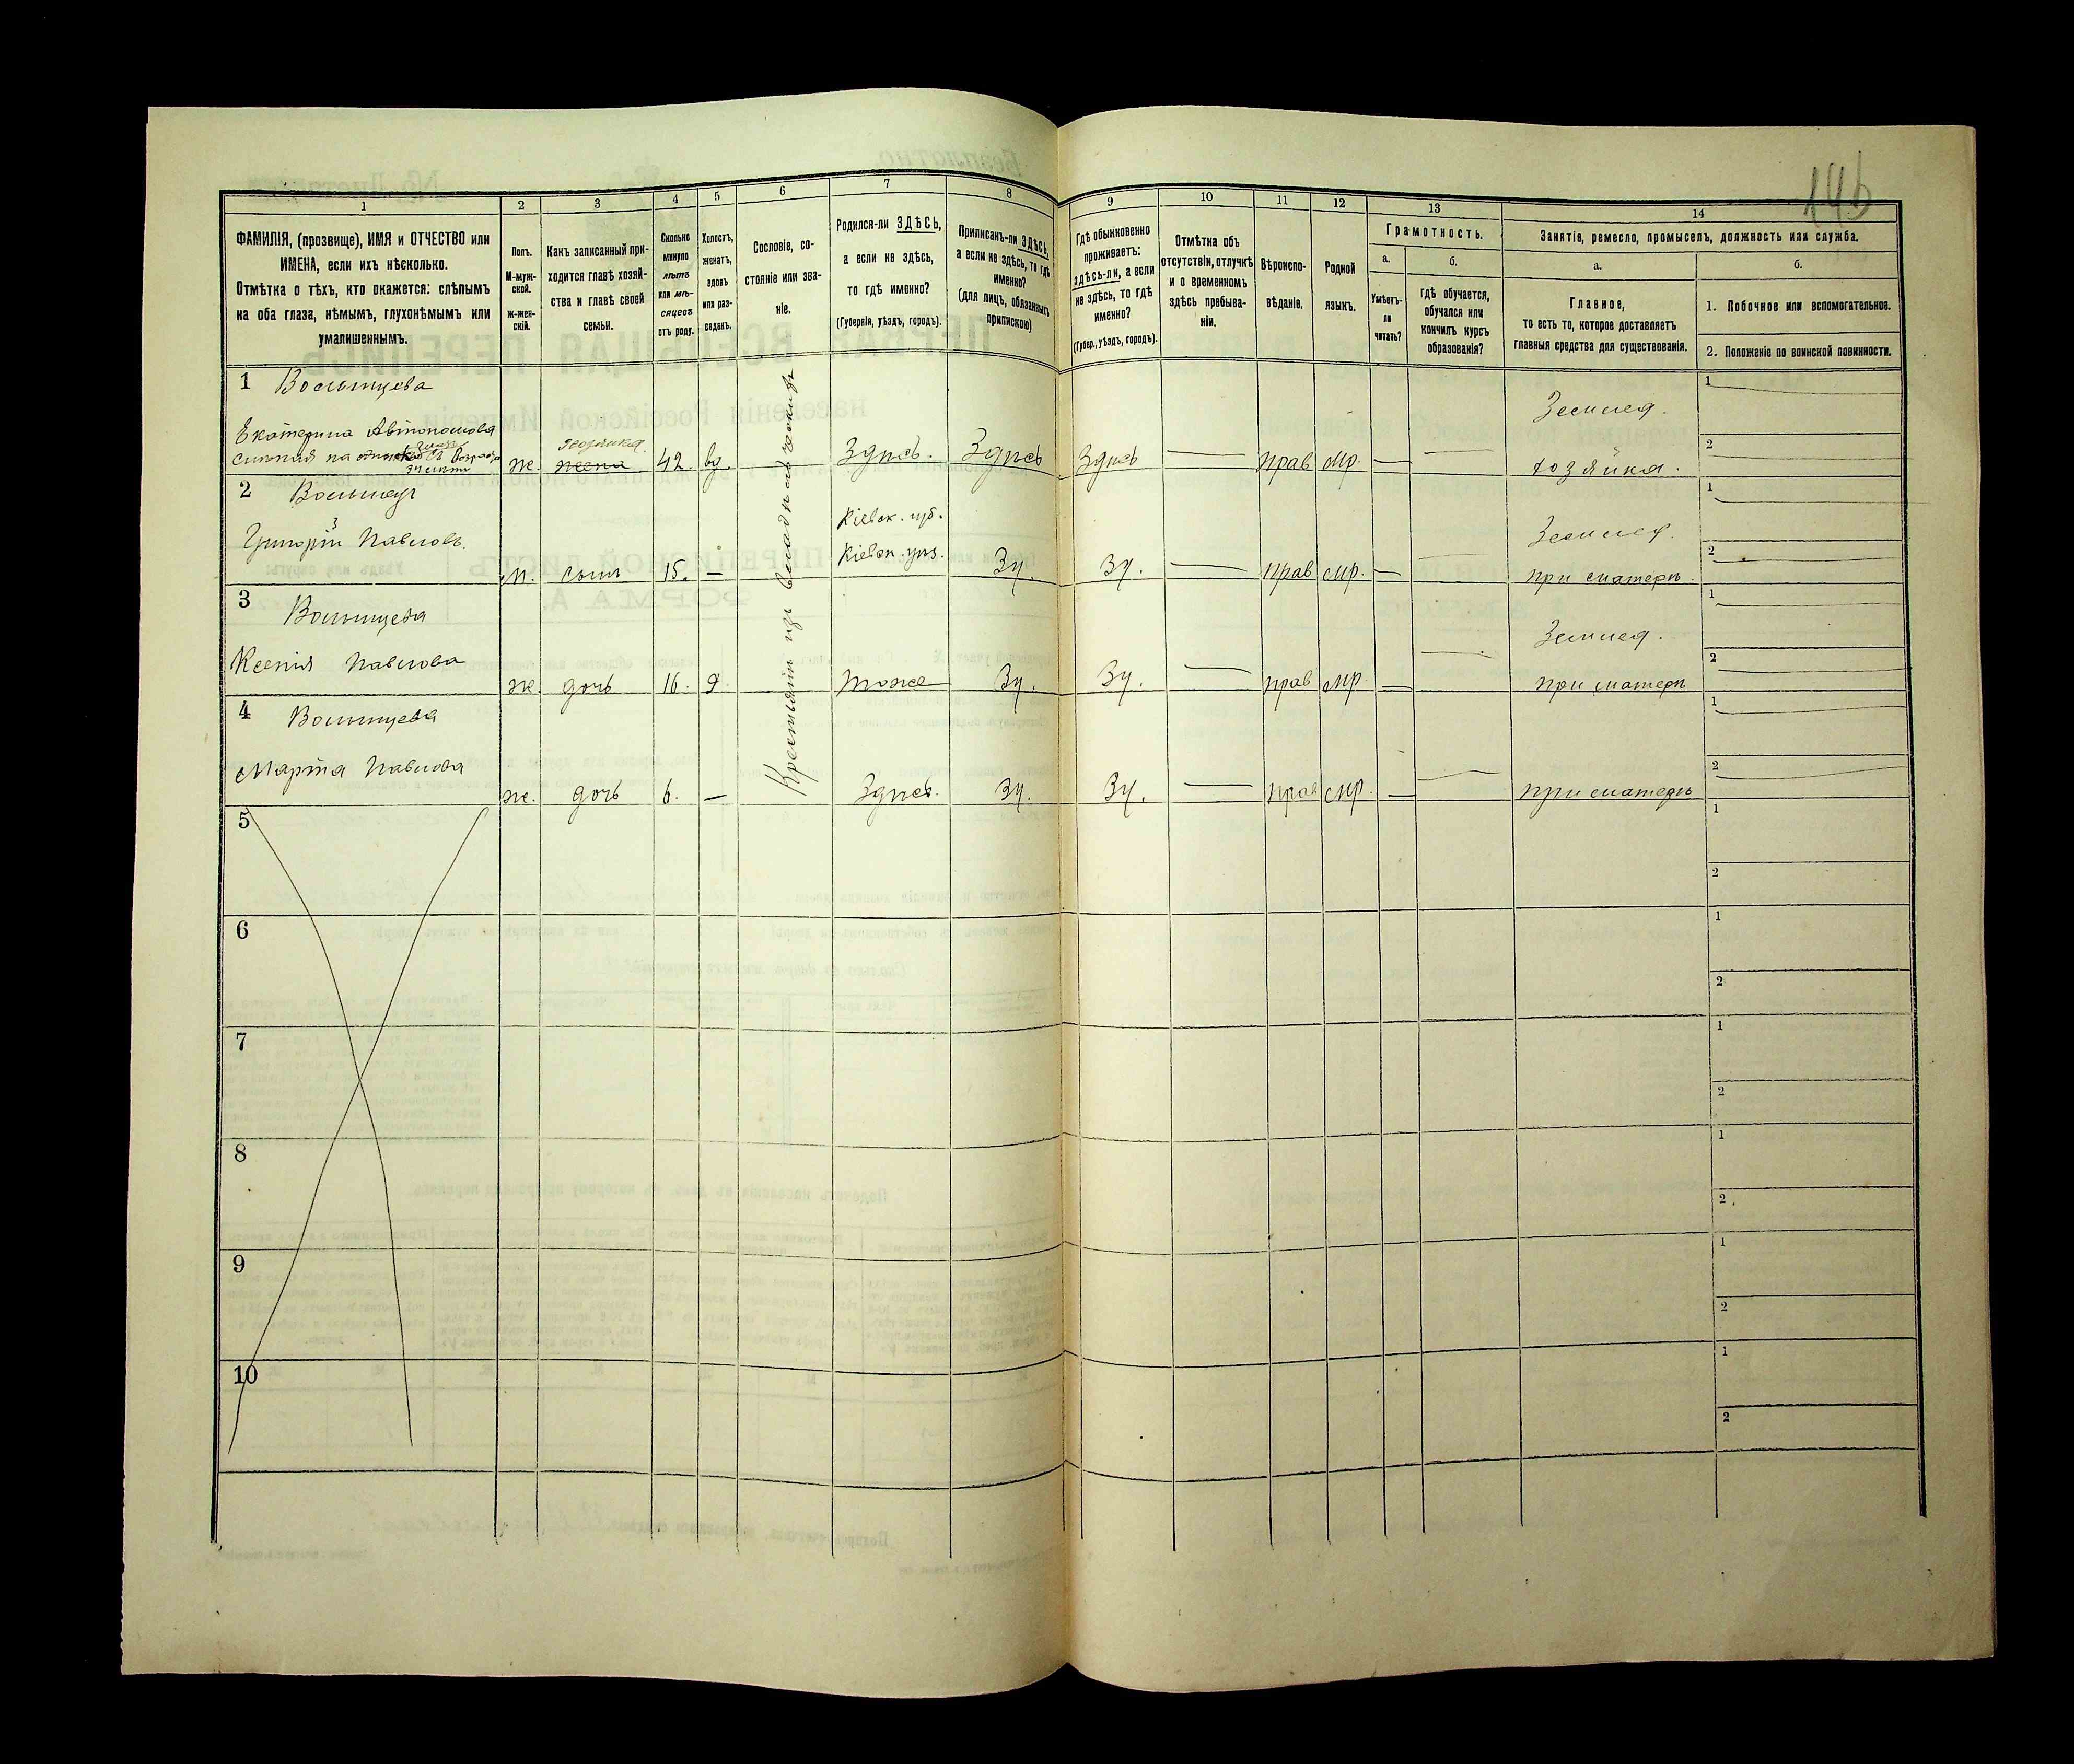 146
1
2
3
4
5
6
7
8
9
10
11
12
13
14
ФАМИЛІЯ, (прозвище), ИМЯ и ОТЧЕСТВО или
ИМЕНА, если ихъ нѣсколько.
Отмѣтка о тѣхъ, кто окажется: слѣпымъ
на оба глаза, нѣмымъ, глухонѣмымъ или
умалишеннымъ.
Полъ.
М-муж-
ской.
ж-жен-
скій.
Какъ записанный при-
ходится главѣ хозяй-
ства и главѣ своей
семьи.
Сколько
минуло
лѣтъ
или мѣ-
сяцевъ
отъ роду.
Холостъ,
женатъ,
вдовъ
или раз-
веденъ.
Сословіе, со-
стояніе или зва-
ніе.
Родился-ли ЗДѢСЬ,
а если не здѣсь,
то гдѣ именно?
(Губернія, уѣздъ, городъ).
Приписанъ-ли ЗДѢСЬ,
а если не здѣсь, то гдѣ
именно?
(для лицъ, обязанныхъ
припискою)
Гдѣ обыкновенно
проживаетъ:
здѣсь-ли, а если
не здѣсь, то гдѣ
именно?
(Губер., уѣздъ, городъ).
Отмѣтка объ
отсутствіи, отлучкѣ
и о временномъ
здѣсь пребыва-
ніи.
Вѣроиспо-
вѣданіе.
Родной
языкъ.
Грамотность.
а.
Умѣетъ-
ли
читать?
б.
гдѣ обучается,
обучался или
кончилъ курсъ
образованія?
Занятіе, ремесло, промыселъ, должность или служба.
а.
Главное,
то есть то, которое доставляетъ
главныя средства для существованія.
б.
1. Побочное или вспомогательное.
2. Положеніе по воинской повинности.
1
Екатерина Автономова
ж.
хозяйка
жена
42.
вд.
Крестьянин из
Здѣсь.
Здѣсь
Здѣсь
прав
мр.
Землед.
хозяйка.
1
2
2
Григорій Павловъ.
м.
сынъ
15.
—
Кіевск. губ.
Кіевск. уѣз.
Зд.
Зд.
прав
мр.
Землед.
при матери.
1
2
3
Ксенія Павлова
ж.
дочь
16.
д
тоже
Зд.
Зд.
прав
мр.
Землед.
при матери
1
2
4
Марта Павлова
ж.
дочь
6.
—
Здѣсь.
Зд.
Зд.
прав
мр.
при матери
1
2
5
1
2
6
1
2
7
1
2
8
1
2
9
1
2
10
1
2